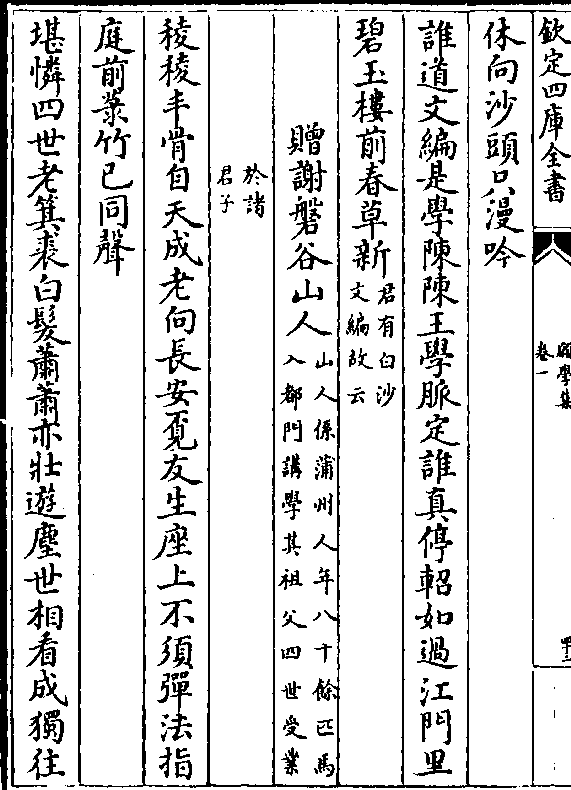 欽定四庫全書
願學集
卷一
休向沙頭只漫吟
誰道文編是學陳陳王學脈定誰真停軺如過江門里
碧玉樓前春草新君有白沙
文編故云
贈謝磐谷山人山人係蒲州人年八十餘匹馬
入都門講學其祖父四世受業
於諸
君子
稜稜丰骨自天成老向長安覓友生座上不須彈法指
庭前叢竹已同聲
堪憐四世老箕裘白髮蕭蕭亦壯遊塵世相看成獨往